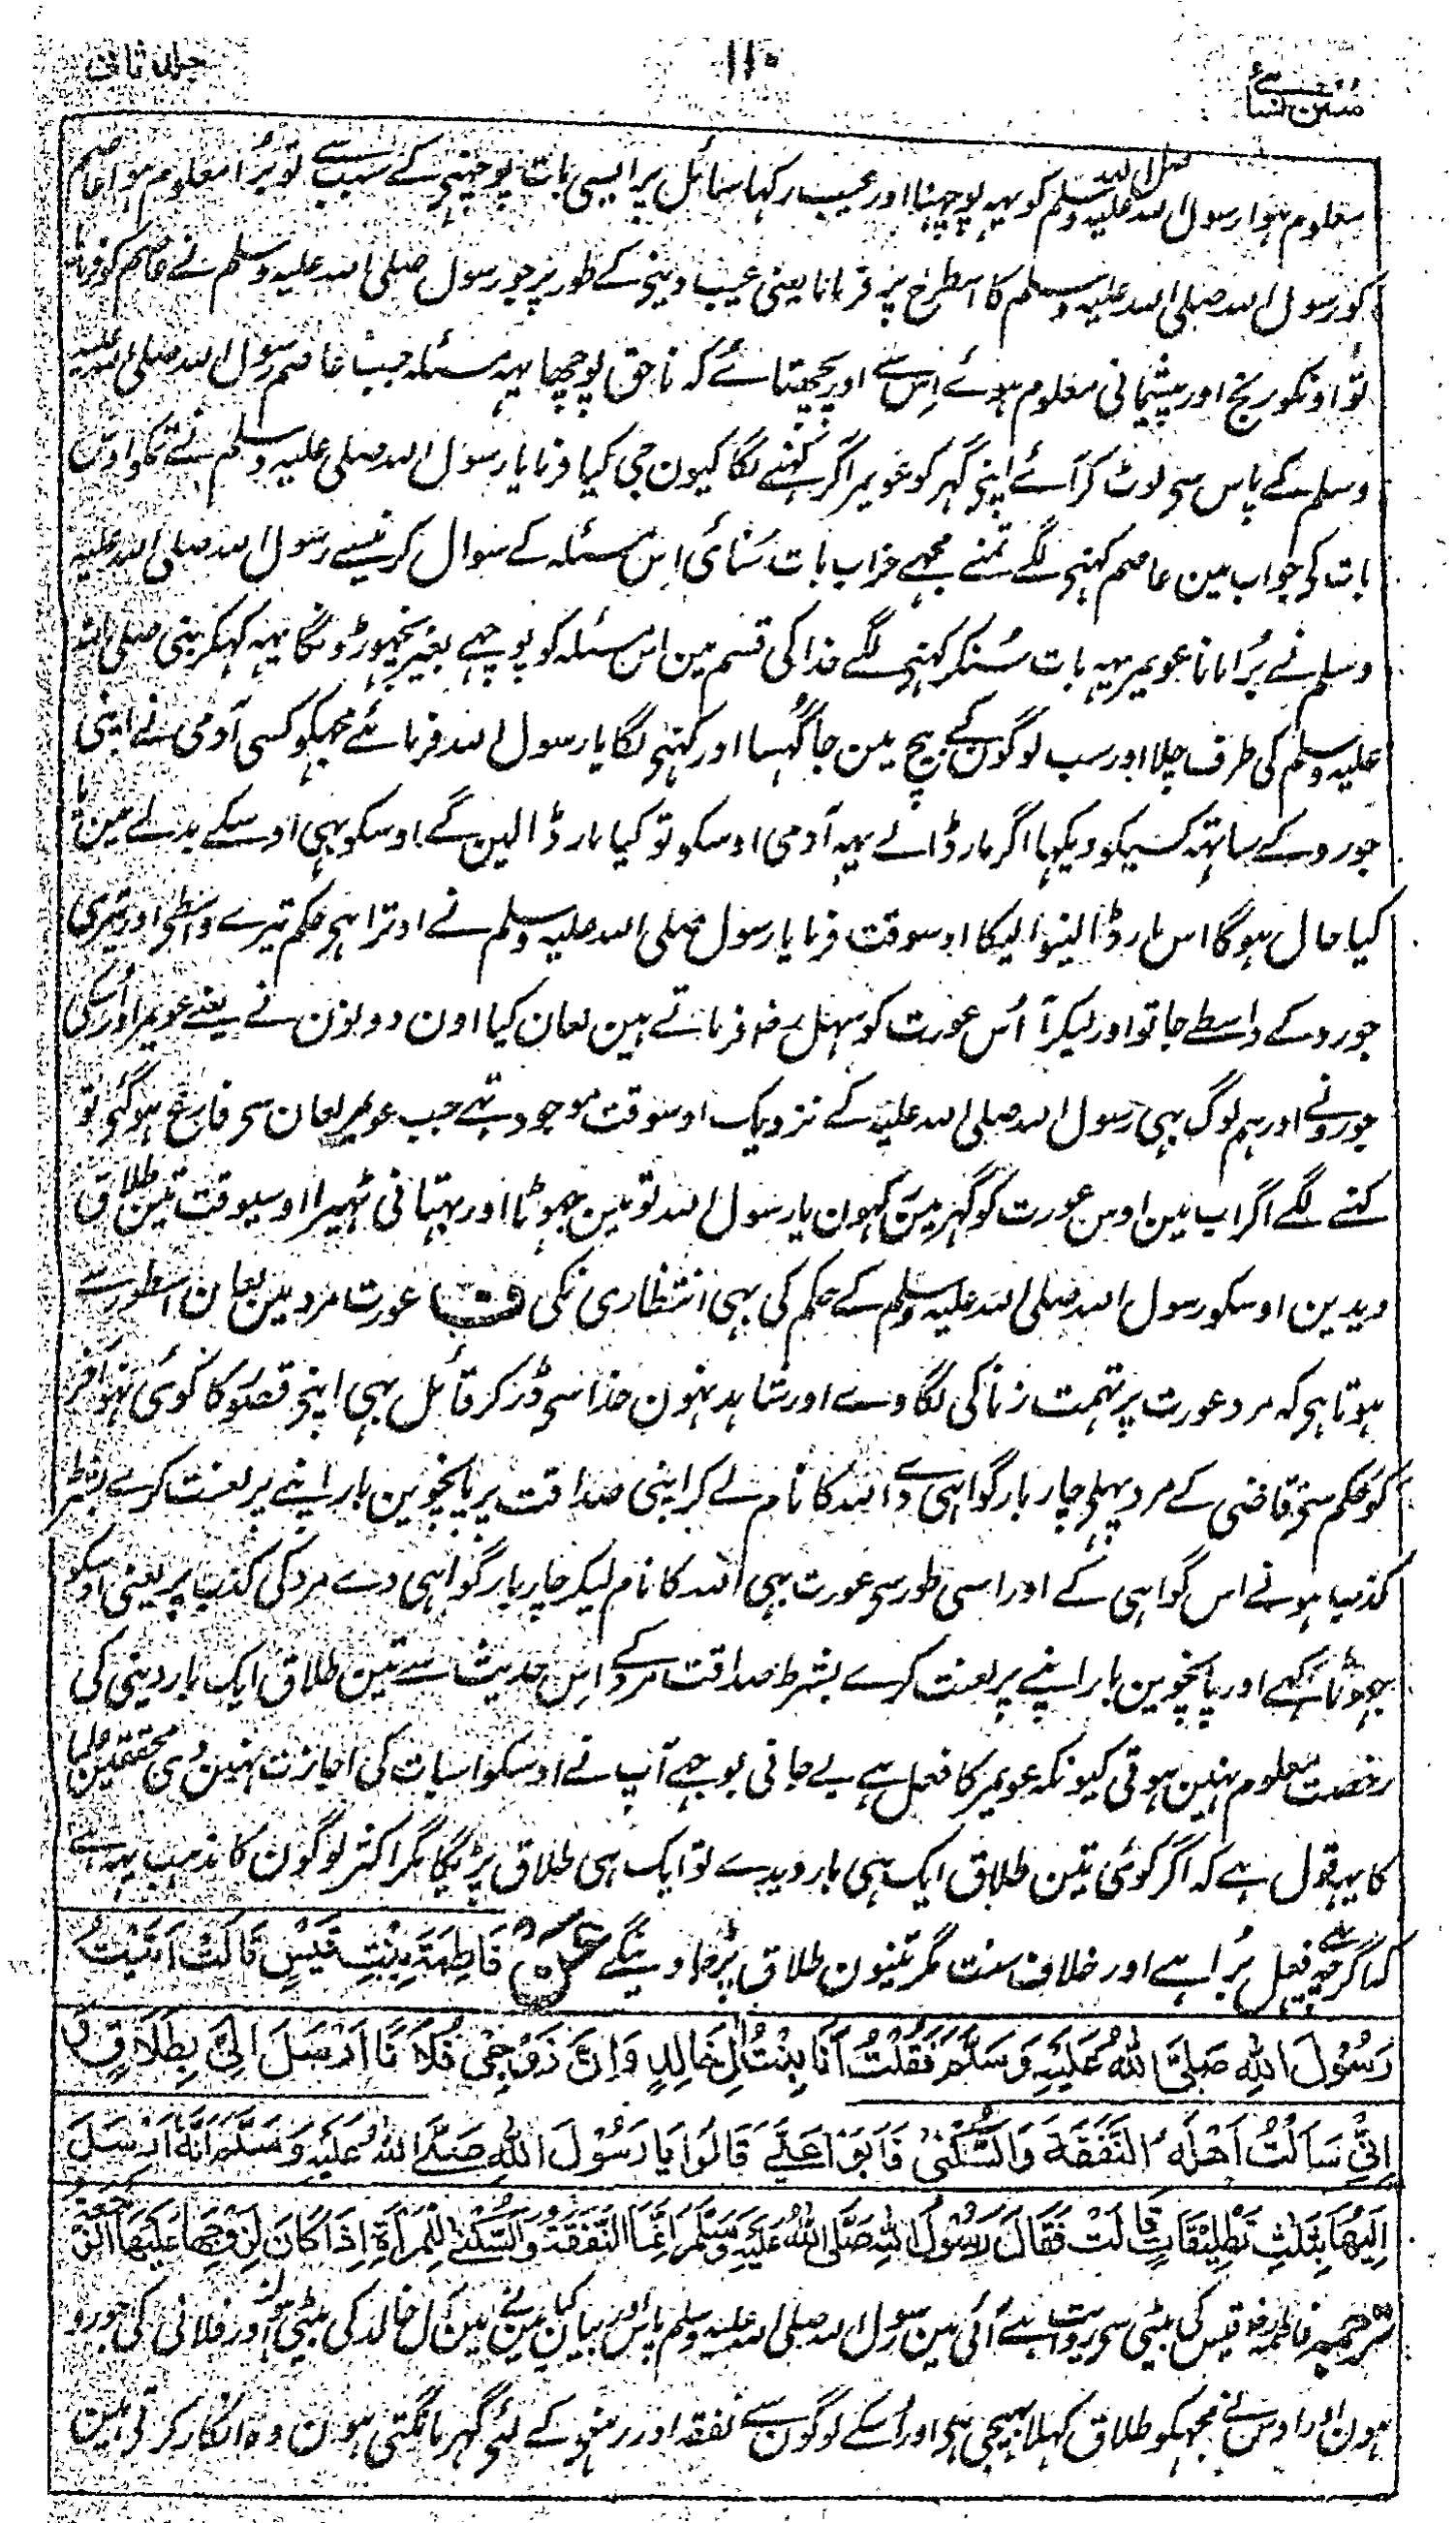 سنن نسائی ۱۱۰ جلد ثانی
معلوم ہوا رسول اللہ صلی اللہ علیہ وسلم کو یہہ پوچہنا اور عیب رکہا سائل پر ایسی بات پوچہنی کے سبب سے تو بُرا معلوم ہوا عاصم
کو رسول اللہ صلی اللہ علیہ وسلم کا اسطرح پر فرمانا یعنی عیب دینی کے طور پر جو رسول صلی اللہ علیہ وسلم نے عاصم کو فرمایا
تو اونکو رنج اور پشیمانی معلوم ہوئے اِس سے اور پچھتائے کہ ناحق پوچھا یہہ مسئلہ جب عاصم رسول اللہ صلی اللہ علیہ
وسلم کے پاس سی لوٹ کر آئے اپنی گہر کو عویمر آکر کہنے لگا کیون جی کیا فرمایا رسول اللہ صلی علیہ وسلم نے تمکو اوس
بات کی جواب مین عاصم کہنی لگے تمنے مجہے خراب بات سنائی اس مسئلہ کے سوال کرنیسے رسول اللہ صلی اللہ علیہ
وسلم نے بُرا مانا عویمر یہہ بات سُنکر کہنی لگے خدا کی قسم مین اس مسئلہ کو پوچہے بغیر نچہوڑونگا یہہ کہکر نبی صلی اللہ
علیہ وسلم کی طرف چلا اور سب لوگون کے بیچ مین جا گُہسا اور کہنی لگا یا رسول اللہ فرمائے مجہکو کسی آدمی نے اپنی
جورو کے ساتہہ کسیکو دیکہا اگر مار ڈالے یہہ آدمی اوسکو تو کیا مار ڈالین گے اوسکو بہی اوسکے بدلے مین یا
کیا حال ہوگا اس مار ڈالینوالیکا اوسوقت فرمایا رسول صلی اللہ علیہ وسلم نے اوترا ہی حکم تیرے واسطی اور تیری
جورو کے واسطے جا تو اور لیکر آ اُس عورت کو سہل رضہ فرماتے ہین لعان کیا اون دونون نے یعنے عویمر اور اُسکی
جورونے اور ہم لوگ بہی رسول اللہ صلی اللہ علیہ کے نزدیک اوسوقت موجود تہے جب عویمر لعان سی فارغ ہوگئی تو
کہنے لگے اگر اب مین اوس عورت کو گہر مین رکہون یا رسول اللہ تو مین جہوٹا اور بہتانی ٹہیرا اوسیوقت تین طلاق
دیدین اوسکو رسول اللہ صلی اللہ علیہ وسلم کے حکم کی بہی انتظاری نکی ف عورت مرد مین لعان اسطور سے
ہوتا ہی کہ مرد عورت پر تہمت زنا کی لگاوے اور شاہد نہون خدا سی ڈر کر قائل بہی اپنی قصور کا کوئی نہو آخر
کو حکم سی قاضی کے مرد پہلی چار بار گواہی دے اللہ کا نام لے کر اپنی صداقت پر پانچوین بار اپنے پر لعنت کرے بشرط
کذب ہونے اس گواہی کے اور اسی طور سی عورت بہی اللہ کا نام لیکر چار بار گواہی دے مرد کی کذب پر یعنی اوسکو
جہوٹا کہے اور پانچوین بار اپنے پر لعنت کرے بشرط صداقت مرد کے اس حدیث سے تین طلاق ایک بار دینی کی
رخصت معلوم نہین ہوتی کیونکہ عویمر کا فعل ہے بے جانی بوجہے آپ نے اوسکو اسبات کی اجازت نہین دی محققین علما
کا یہہ قول ہے کہ اگر کوئی تین طلاق ایک ہی بار دیدے تو ایک ہی طلاق پڑیگا مگر اکثر لوگون کا مذہب یہہ ہے
کہ اگرچہ یہہ فعل بُرا ہے اور خلاف سنت مگر تینون طلاق پڑجاوینگے عَنْ فَاطِمَةَ بِنْتِ قَيْسٍ قَالَتْ اَتَيْتُ
رَسُوْلَ اللهِ صَلَّى اللهُ عَلَيْهِ وَسَلَّمَ فَقُلْتُ اَنَا بِنْتُ اٰلِ خَالِدٍ وَاِنَّ زَوْجِىْ فُلَانًا اَرْسَلَ اِلَىَّ بِطَلَاقٍ وَ
اِنِّىْ سَاَلْتُ اَهْلَهُ النَّفَقَةَ وَالسُّكْنٰى فَاَبَوْا عَلَىَّ قَالُوْا يَا رَسُوْلَ اللهِ صَلَّى اللهُ عَلَيْهِ وَسَلَّمَ اِنَّهُ اَرْسَلَ
اِلَيْهَا بِثَلٰثِ تَطْلِيْقَاتٍ قَالَتْ فَقَالَ رَسُوْلُ اللهِ صَلَّى اللهُ عَلَيْهِ وَسَلَّمَ اِنَّمَا النَّفَقَةُ وَالسُّكْنٰى لِلْمَرْاَةِ اِذَا كَانَ لِزَوْجِهَا عَلَيْهَا الرَّجْعَةُ
ترجمہ فاطمہ رضہ قیس کی بیٹی سی روایت ہے آئی مین رسول اللہ صلی اللہ علیہ وسلم پاس اور بیان کیا مین نے مین آل خالد کی بیٹی ہون اور فلانی کی جورو
ہون اور اوس نے مجہکو طلاق کہلا بہیجی ہی اور اُسکے لوگون سے نفقہ اور رہنی کے لئی گہر مانگتی ہون وہ انکار کرتی ہین